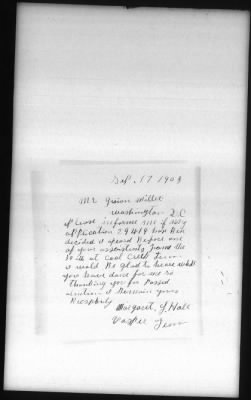 Sep. 17 1908
Mr Guion Miller
Washington D.C
please informe me if my
application 29419 has Ben
decided I apeard Before one
of your assistants June the
30 th at Coal Creek Tenn.
I would Be glad to hear what
you have done for me so
thanking you for passed
I Remain yours
Margaret. J. Hall
Tenn